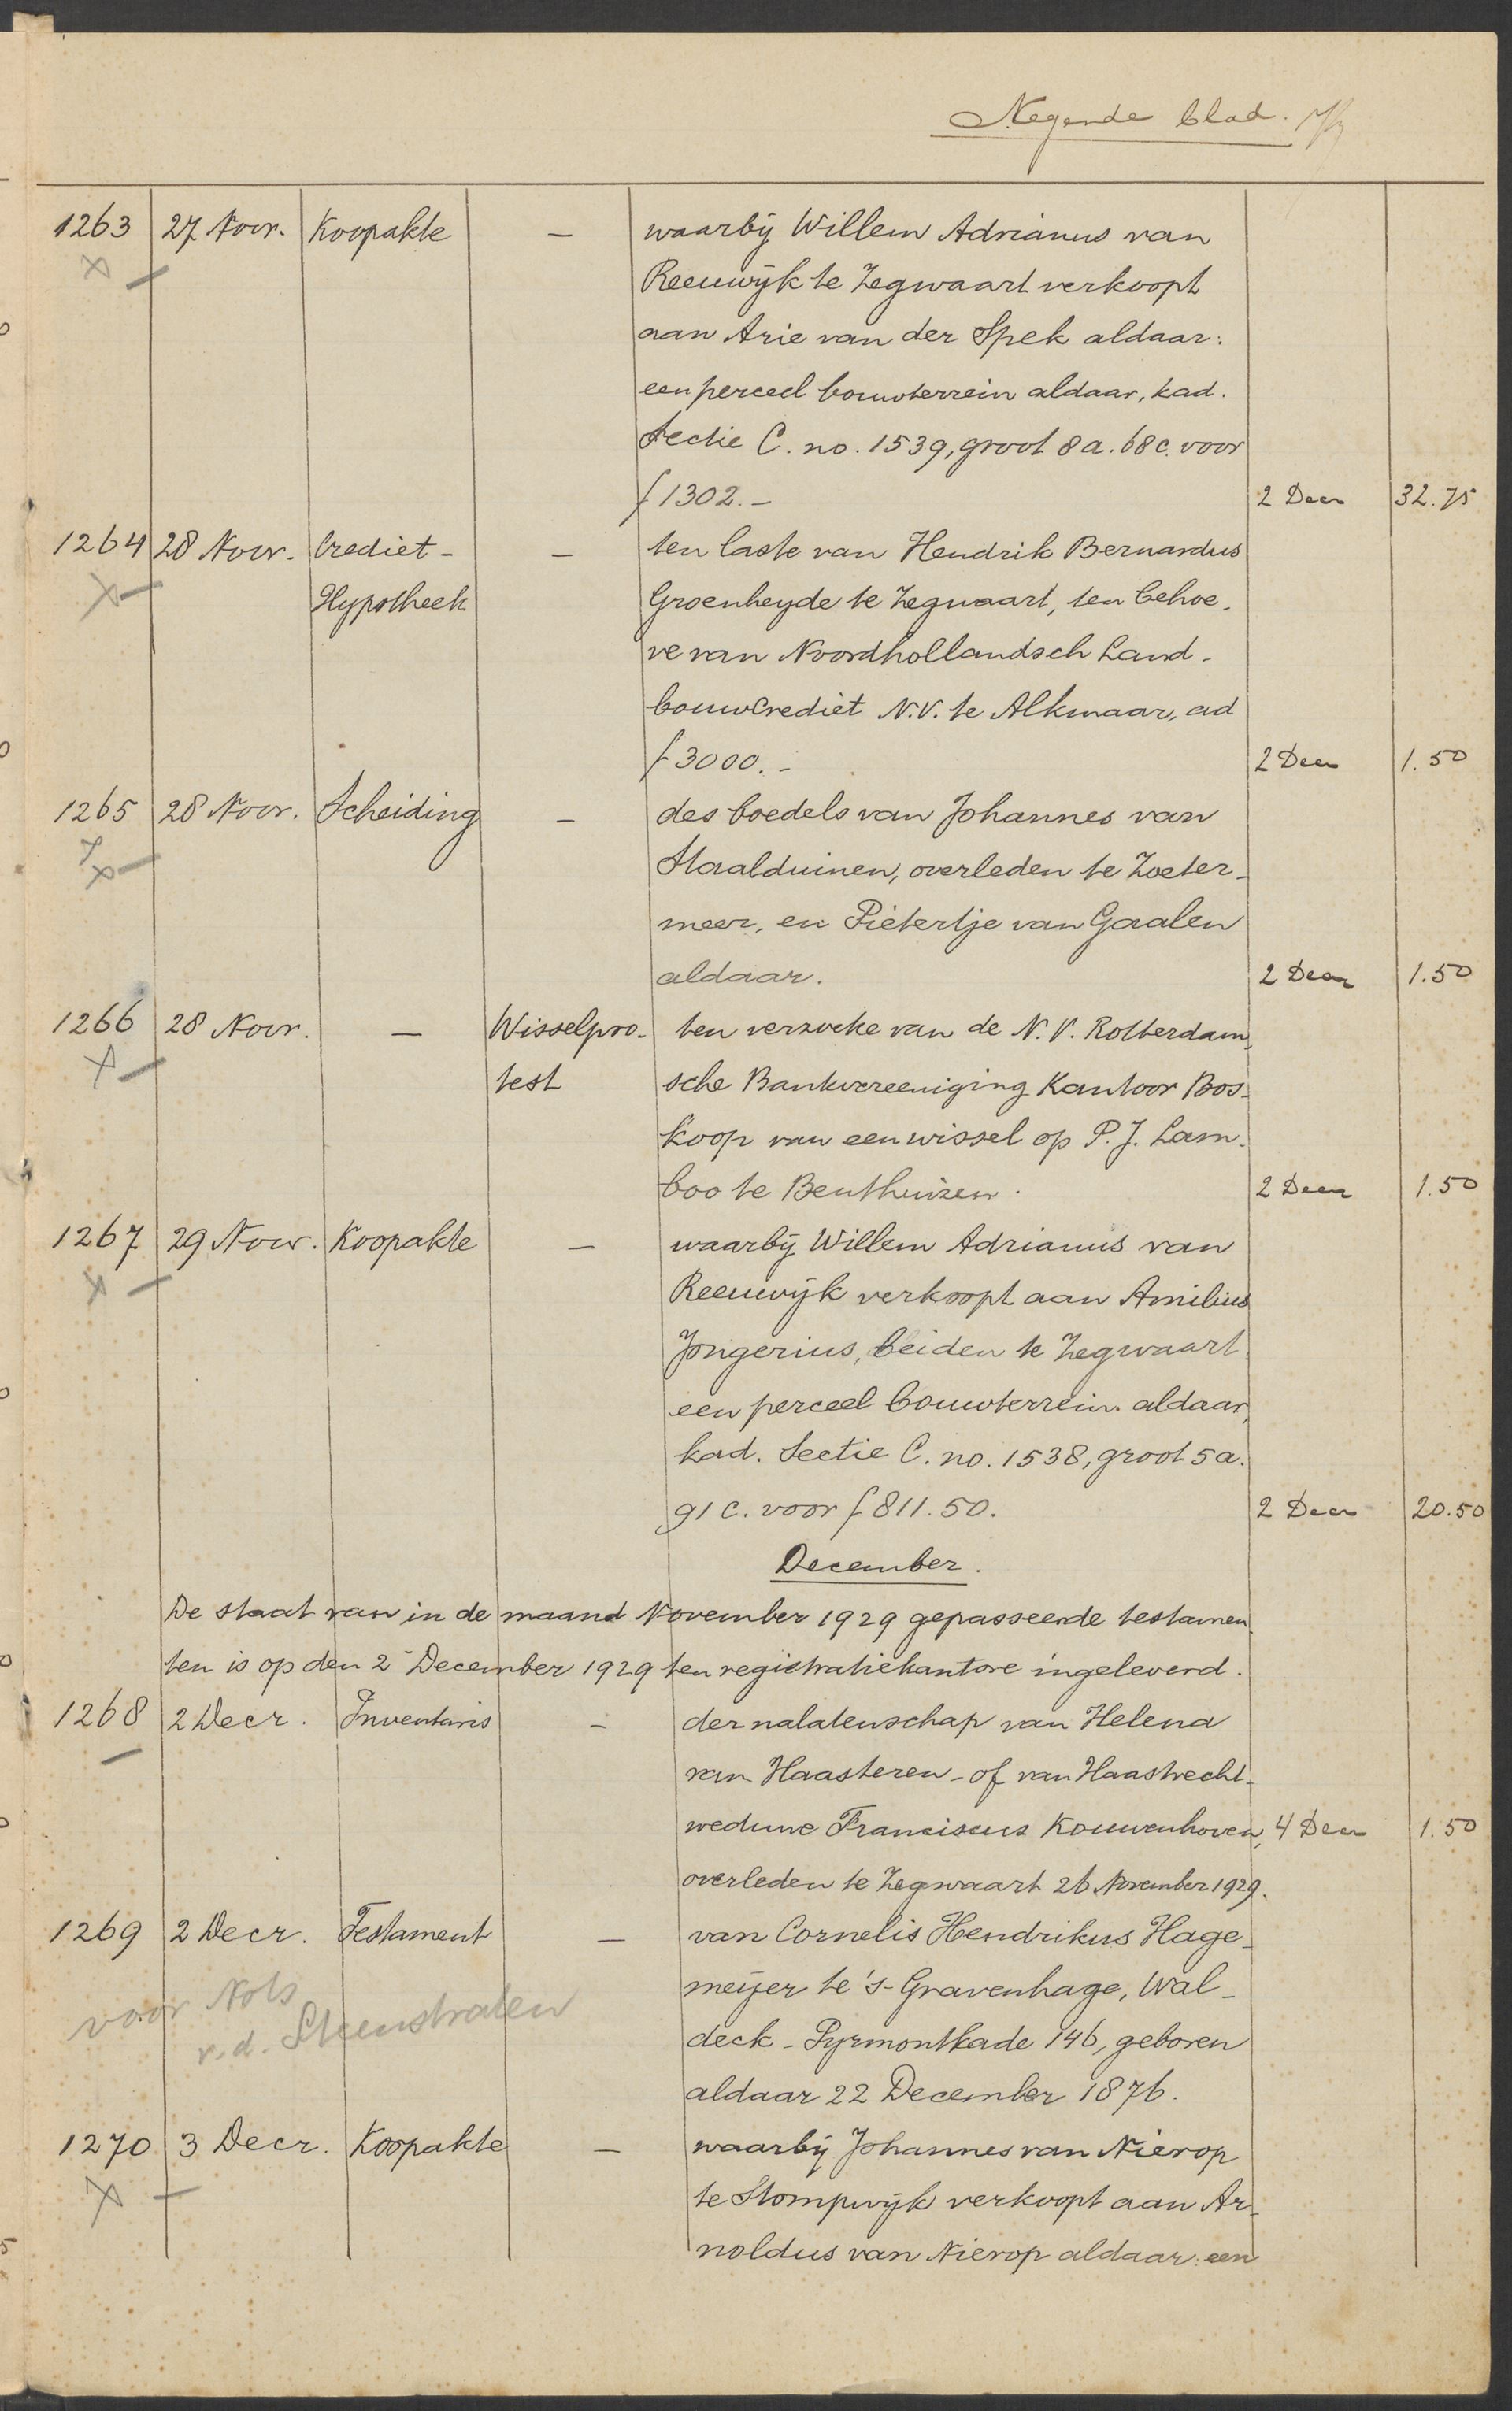 Negende blad.
1263 27 Novr. Koopakte — waarbij Willem Adrianus van
Reeuwijk te Zegwaart verkoopt
aan Arie van der Spek aldaar:
een perceel bouwterrein aldaar, kad.
Sectie C. no. 1539, groot 8 a. 68 c. voor
f 1302.- 2 Decr 32.75
1264 28 Novr. Crediet- — ten laste van Hendrik Bernardus
Hypotheek Groenheyde te Zegwaart, ten behoe-
ve van Noordhollandsch Land-
bouwcrediet N.V. te Alkmaar, ad
f 3000.- 2 Decr 1.50
1265 28 Novr. Scheiding — des boedels van Johannes van
Staalduinen, overleden te Zoeter-
meer, en Pietertje van Gaalen
aldaar. 2 Decr 1.50
1266 28 Novr. — Wisselpro- ten verzoeke van de N.V. Rotterdam-
test sche Bankvereeniging Kantoor Bos-
koop van een wissel op P. J. Lam-
boo te Benthuizen. 2 Decr 1.50
1267 29 Novr. Koopakte — waarbij Willem Adrianus van
Reeuwijk verkoopt aan Amilius
Jongerius, beiden te Zegwaart
een perceel bouwterrein aldaar,
kad. Sectie C. no. 1538, groot 5 a.
91 c. voor f 811.50. 2 Decr 20.50
December.
De staat van in de maand November 1929 gepasseerde testamen
ten is op den 2 December 1929 ten registratiekantore ingeleverd.
1268 2 Decr. Inventaris — der nalatenschap van Helena
van Haasteren - of van Haastrecht-
weduwe Franciscus Kouwenhoven, 4 Decr 1.50
overleden te Zegwaart 26 November 1929.
1269 2 Decr. Testament — van Cornelis Hendrikus Hage-
voor Nots meijer te 's-Gravenhage, Wal-
v.d. Steenstraten deck-Pyrmontkade 146, geboren
aldaar 22 December 1876.
1270 3 Decr. Koopakte — waarbij Johannes van Nierop
te Stompwijk verkoopt aan Ar-
noldus van Nierop aldaar: een